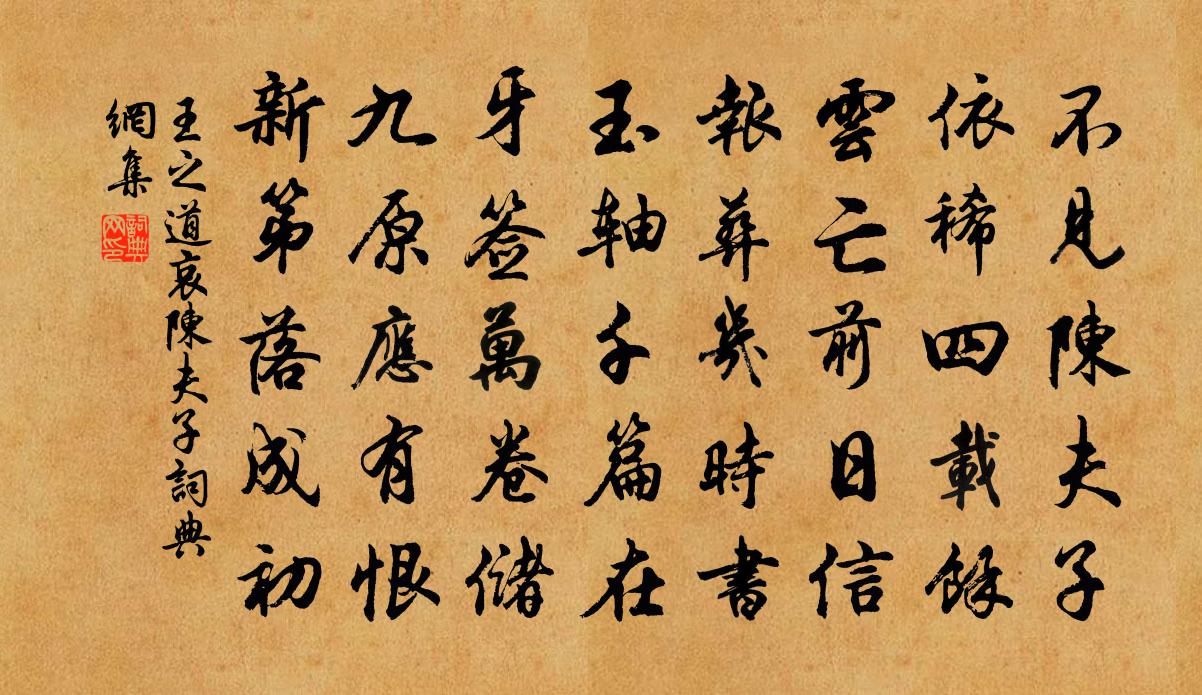 不見陳夫子
依稀四載餘
雲亡前日信
報葬幾時書
玉軸千篇在
牙簽萬卷儲
九原應有恨
新第落成初
王之道哀陳夫子詞典
網集
詞典
网印